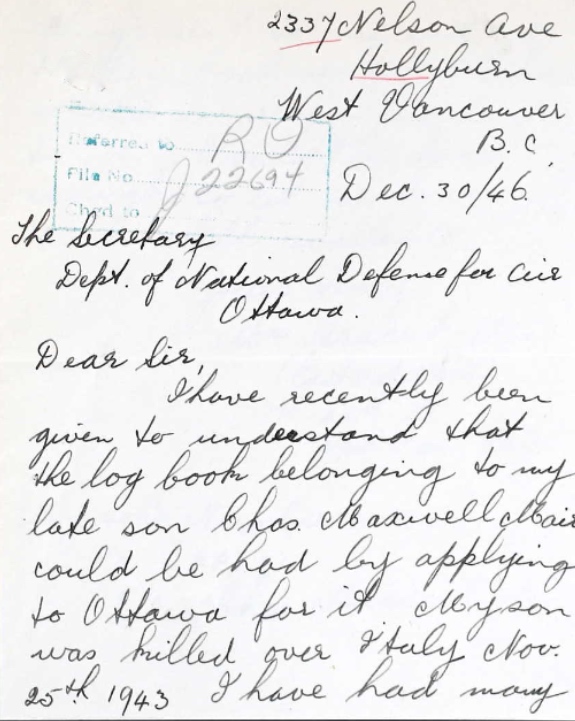 2337 Nelson Ave
Hollyburn
West Vancouver
B.C.
Dec. 30/46.
Referred to RO
File No. J22694
Chgd to
The Secretary
Dept. of National Defense for Air
Ottawa.
Dear Sir,
I have recently been
given to understand that
the log book belonging to my
late son Chas. Maxwell Mair
could be had by applying
to Ottawa for it My son
was killed over Italy Nov.
25th 1943 I have had many